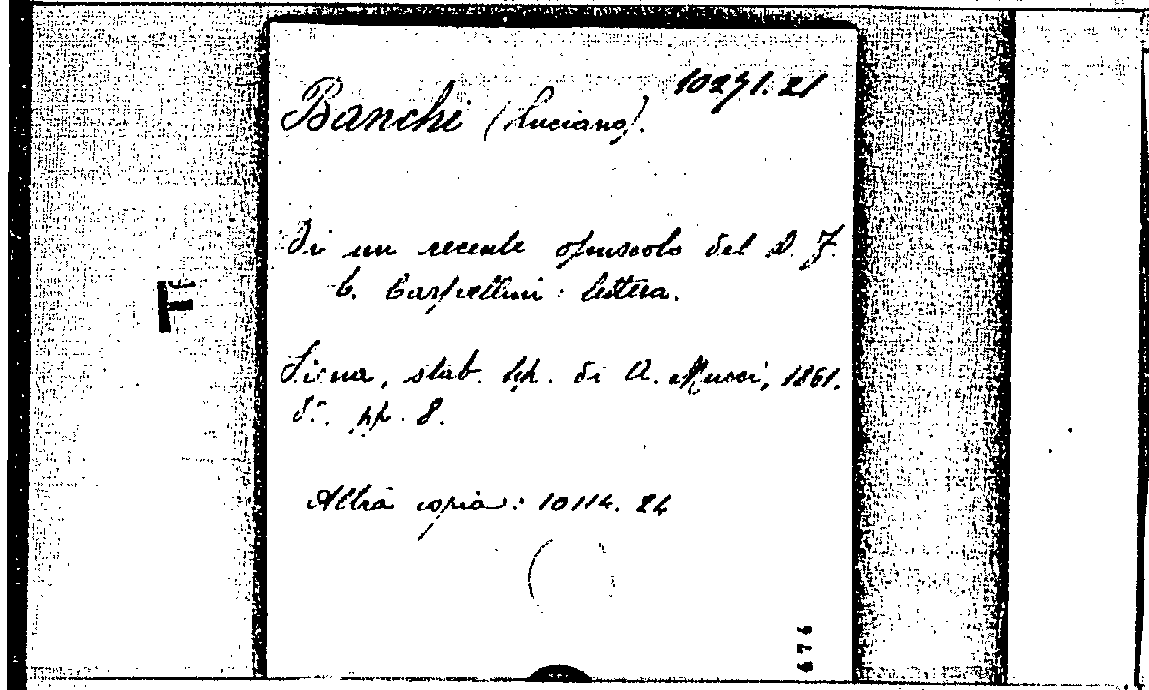 10271.21
Banchi (Luciano).
Di un recente opuscolo del D. F.
C. Carpellini: lettera.
Siena, stab. tip. di A. Mucci, 1861.
8°. pp. 8.
Altra copia: 10114. 24
F
674